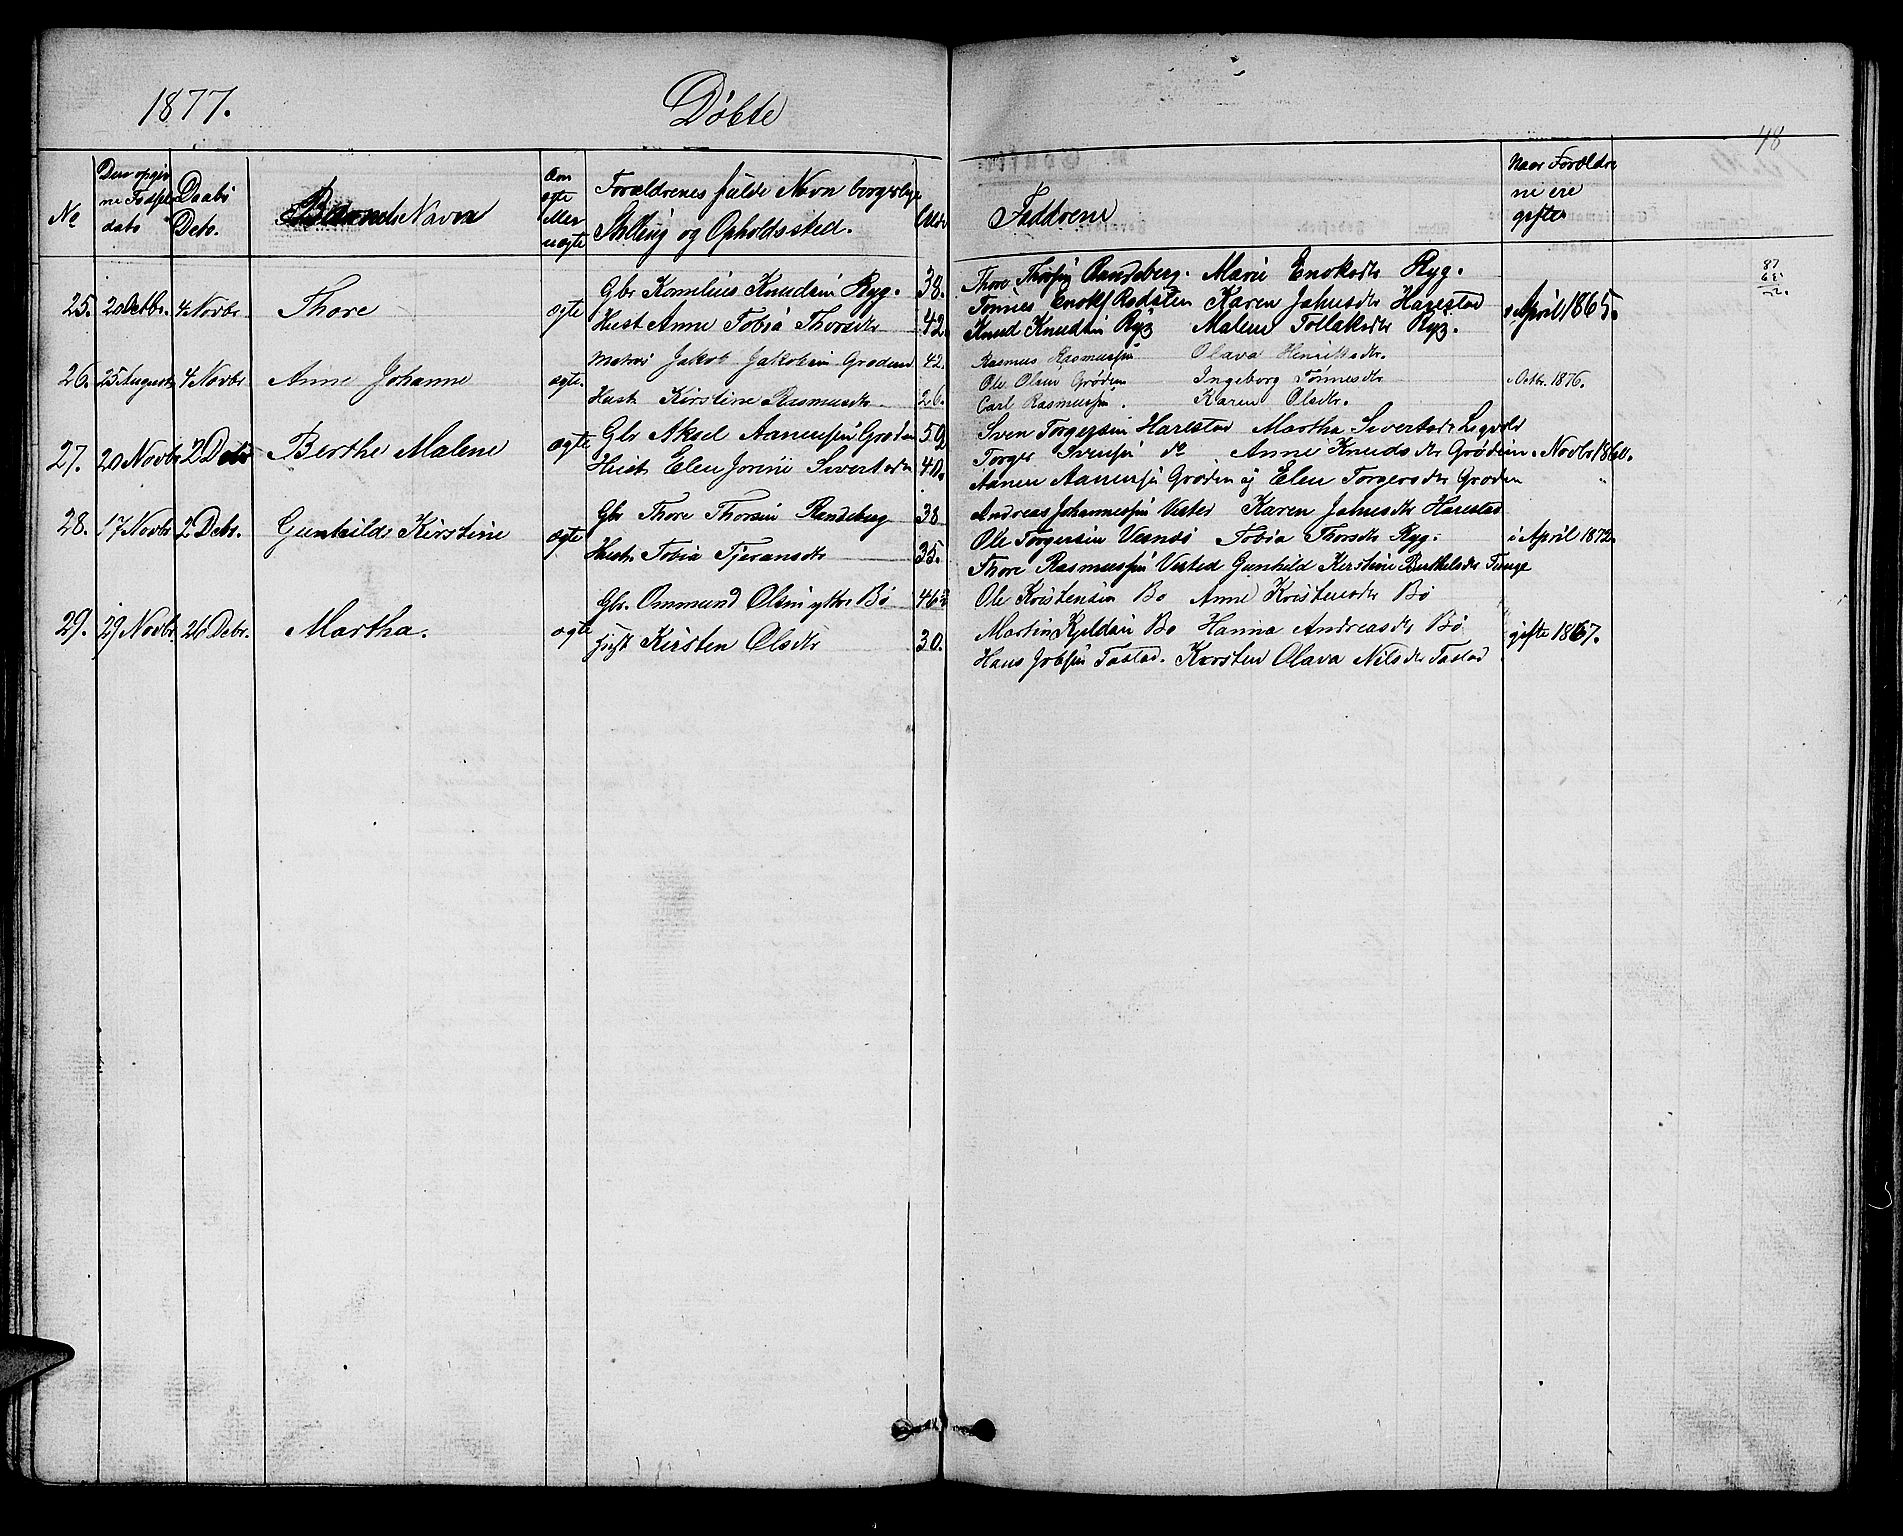 1877. Döbte
48
No
Den opgiv
ne Fødsels
dato
Daabs
Dato.
Barnets Navn
Om
ægte
eller
uægte
Forældrenes fulde Navn borgerlige
Stilling og Opholdssted.
Alder
Faddrene
Naar Forældre
ne ere
gifte
25. 20 Octbr. 4 Novbr. Thore ægte
Gbr Kornelius Knudsen Ryg. 38.
Hust Anne Tobia Thorsdtr 42
Thore Thorsen Randeberg. Marie Enoksdtr Ryg.
Tønnes Enoks Rødsten Karen Jahnsdtr Harestad
Knud Knudsen Ryg Malene Tollaksdtr Ryg.
i April 1865.
26. 25 August 4 Novbr Anne Johanne ægte.
Matros Jakob Jakobsen Grødem 42.
Hust Kirstine Rasmusdtr 26.
Rasmus Rasmussen Olava Henriksdtr.
Ole Olsen Grøden Ingeborg Tønnesdtr
Carl Rasmussen. Karen Olsdtr.
i Octbr. 1876.
27. 20 Novbr 2 Debr Berthe Malene ægte
Gbr Aksel Aanensen Grøden 59
Hust Elen Jorine Sivertsdtr 40.
Sven Torgersen Harestad Martha Sivertsdtr
Torger Svensen do Anne Knudsdtr Grødem
Aanen Aanensen Grøden og Elen Torgersdtr Grøden
i Novbr 1860.
28. 17 Novbr 2 Debr. Gunhilde Kirstine ægte
Gbr Thore Thorsen Randeberg 38
Hust Tobia Tjeransdtr 35.
Andreas Johannessen Vested Karen Jahnsdtr Harestad
Ole Torgersen Vesnes Tobia Thorsdtr Ryg.
Thore Rasmussen Vested Gunhild Kirstine Berthelsdtr Tunge
i April 1872.
29. 29 Novbr. 26 Debr. Martha. ægte
Gbr. Ommund Olsen yttre Bø 46
Hust Kirsten Olsdtr 30.
Ole Kristensen Bø Anne Kristensdtr Bø
Martin Kjeldsen Bø Hanna Andreasdtr Bø
Hans Jobsen Tastad. Karsten Olava Nilsdtr Tastad
gifte 1867.